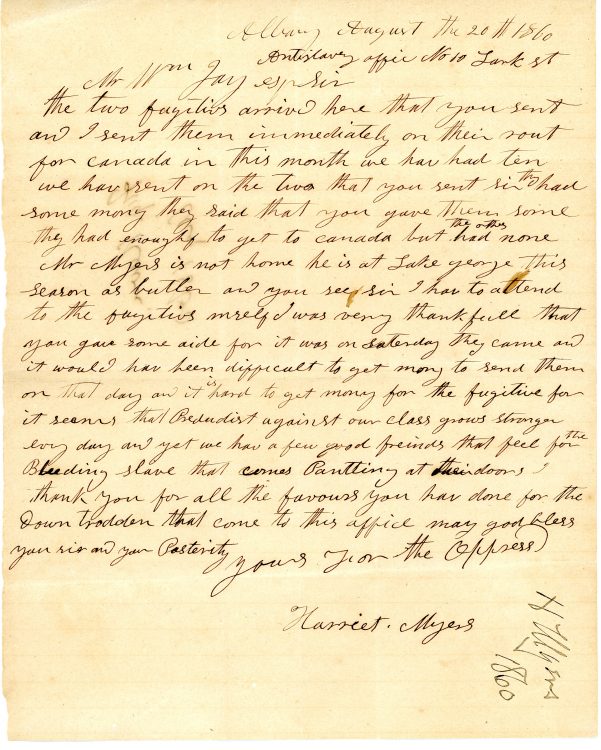 Albany August the 20th 1860
Antislavery office No 10 Lark st
Mr Wm Jay esp Sir
the two fugitivs arrivd here that you sent
and I sent them immediately on their rout
for canada in this month we hav had ten
we hav sent on the two that you sent sir they had
some mony they said that you gave them some
they had enoughf to get to canada but the others had none
Mr Myers is not home he is at Lake george this
season as butler and you see sir I hav to attend
to the fugitivs mself I was very thankfull that
you gave some aide for it was on saterday they came and
it would hav been difficult to get mony to send them
on that day and it is hard to get mony for the fugitive for
it seems that Predudist against our class grows stronger
every day and yet we hav a few good freinds that feel for the
Bleeding slave that comes Pantting at their doors I
thank you for all the favours you hav done for the
Down trodden that come to this office may god bless
you sir and your Posterity
yours for the Oppressd
Harriet. Myers
H Myers
1860